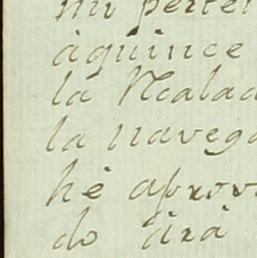 mi perte
àquince
la Real ad
la navega
hè aprov
do àrà